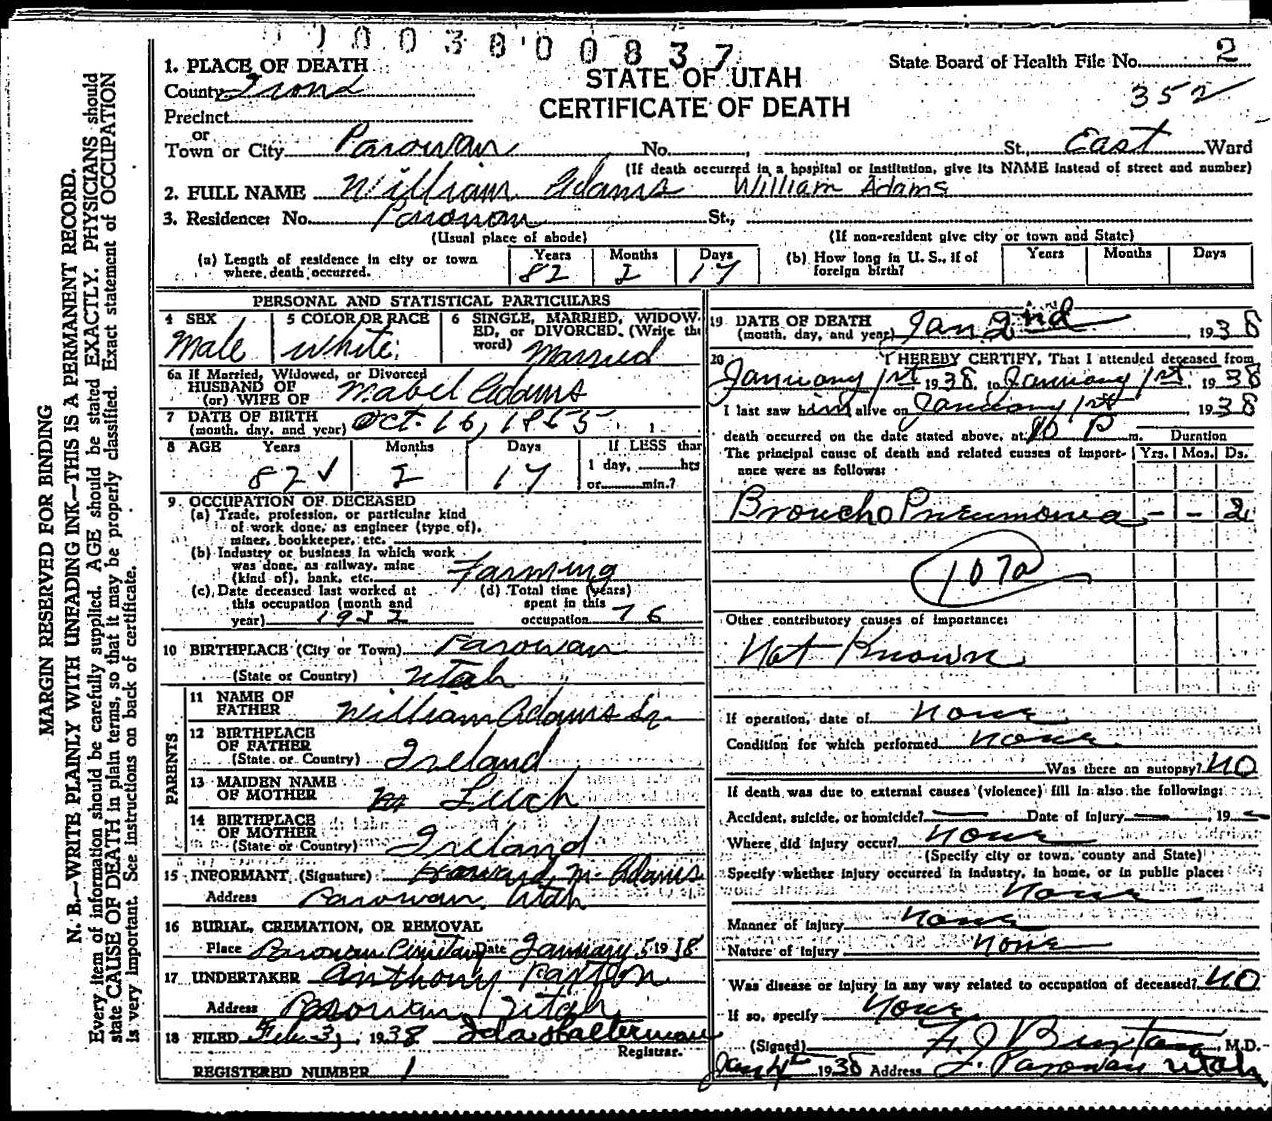 00038'00837
1. PLACE OF DEATH
STATE OF UTAH
CERTIFICATE OF DEATH
State Board of Health File No. 2
352
County Iron
Precinct
or
Town or City Parowan No. , St., East Ward
(If death occurred in a hospital or institution, give its NAME instead of street and number)
2. FULL NAME William Adams William Adams
3. Residence: No. Parowan St.,
(Usual place of abode) (If non-resident give city or town and State)
(a) Length of residence in city or town where death occurred. Years 82 Months 2 Days 17
(b) How long in U. S., if of foreign birth? Years Months Days
PERSONAL AND STATISTICAL PARTICULARS
4 SEX Male
5 COLOR OR RACE White
6 SINGLE, MARRIED, WIDOWED, or DIVORCED. (Write the word) Married
6a If Married, Widowed, or Divorced
HUSBAND OF
(or) WIFE OF Mabel Adams
7 DATE OF BIRTH
(month, day, and year) Oct. 16, 1855
8 AGE Years 82 Months 2 Days 17
If LESS than
1 day, hrs
or min.?
9 OCCUPATION OF DECEASED
(a) Trade, profession, or particular kind
of work done, as engineer (type of),
miner, bookkeeper, etc.
(b) Industry or business in which work
was done, as railway, mine
(kind of), bank, etc. Farming
(c) Date deceased last worked at
this occupation (month and
year) 1932
(d) Total time (years)
spent in this
occupation 76
10 BIRTHPLACE (City or Town) Parowan
(State or Country) Utah
PARENTS
11 NAME OF
FATHER William Adams Sr.
12 BIRTHPLACE
OF FATHER
(State or Country) Ireland
13 MAIDEN NAME
OF MOTHER Leech
14 BIRTHPLACE
OF MOTHER
(State or Country) Ireland
15 INFORMANT (Signature) Howard M. Adams
Address Parowan, Utah
16 BURIAL, CREMATION, OR REMOVAL
Place Parowan Cimetary Date January 5 1938
17 UNDERTAKER Anthony Paxton
Address Parowan Utah
18 FILED Feb. 3, 1938 Ida Halterman
Registrar.
REGISTERED NUMBER 1
19 DATE OF DEATH
(month, day, and year) Jan 2nd, 1938
20 I HEREBY CERTIFY, That I attended deceased from
January 1st 1938, to January 1st 1938
I last saw him alive on January 1st 1938
death occurred on the date stated above, at 10 P m. Duration
The principal cause of death and related causes of importance were as follows: Yrs. Mos. Ds.
Broucho Pneumonia - - 2
107a
Other contributory causes of importance:
Not Known
If operation, date of None
Condition for which performed None
Was there an autopsy? NO
If death was due to external causes (violence) fill in also the following:
Accident, suicide, or homicide? Date of injury , 19
Where did injury occur? None
(Specify city or town, county and State)
Specify whether injury occurred in industry, in home, or in public place:
None
Manner of injury None
Nature of injury None
Was disease or injury in any way related to occupation of deceased? NO
If so, specify None
(Signed) , M.D.
Jan 4th 1938 Address Parowan Utah
MARGIN RESERVED FOR BINDING
N. B.—WRITE PLAINLY WITH UNFADING INK—THIS IS A PERMANENT RECORD.
Every item of information should be carefully supplied. AGE should be stated EXACTLY. PHYSICIANS should
state CAUSE OF DEATH in plain terms, so that it may be properly classified. Exact statement of OCCUPATION
is very important. See instructions on back of certificate.